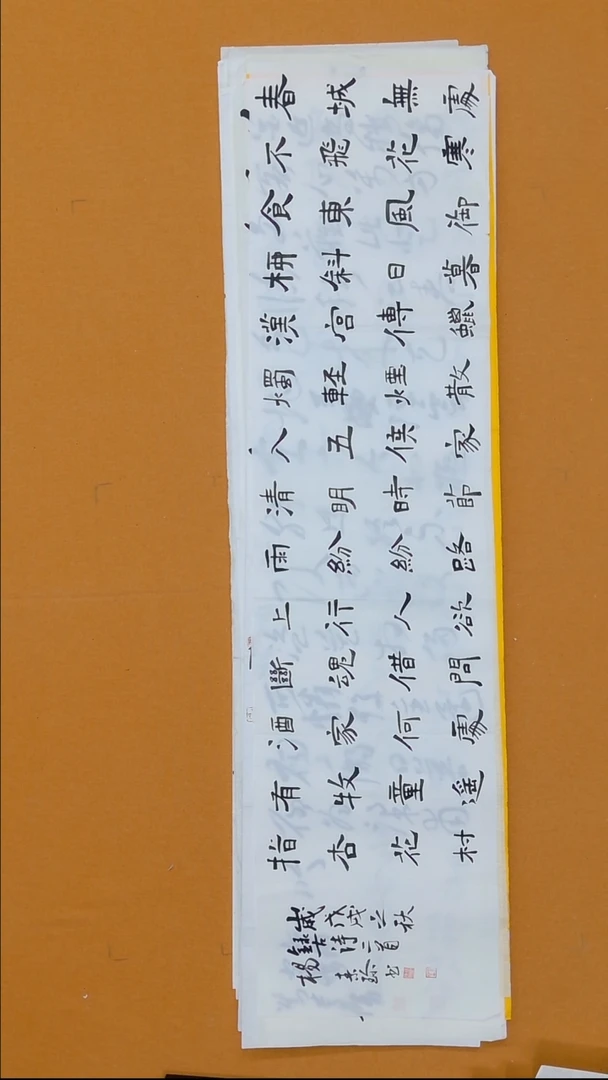 春城無處
不飛花寒
食東風御
柳斜日暮
漢宮傳蠟
燭輕煙散
入五侯家
清明時節
雨紛紛路
上行人欲
斷魂借問
酒家何處
有牧童遥
指杏花村
歲戊戌立秋
錄古詩二首
楊素珍书